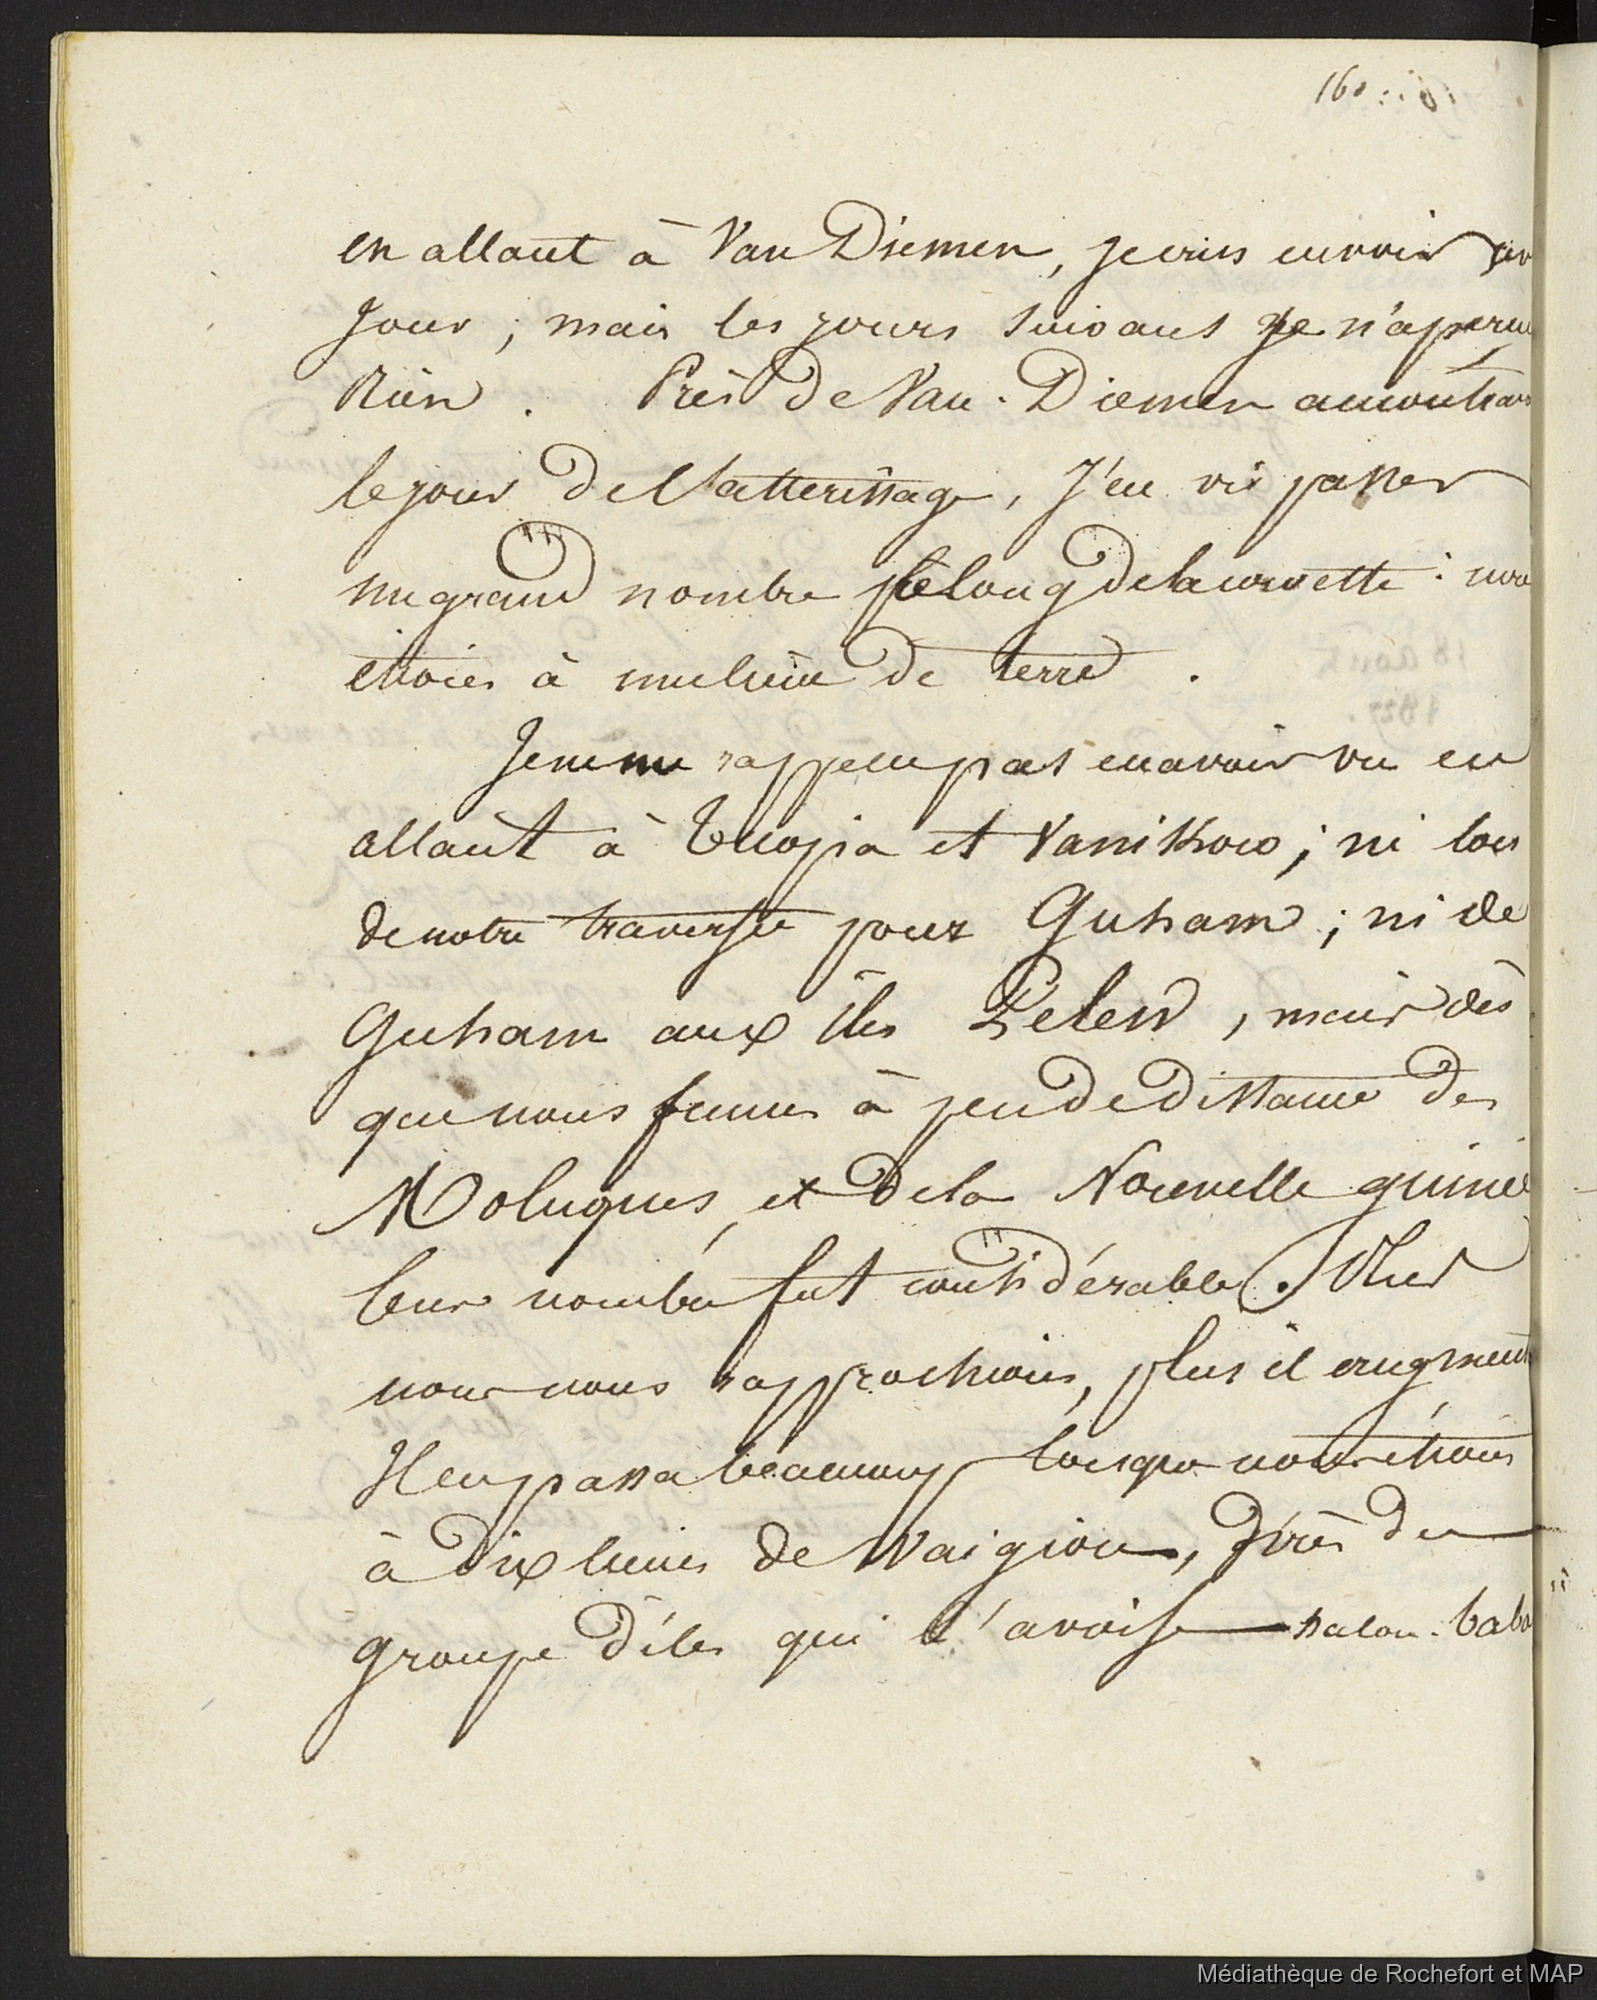 160
en allant à Van Diemen, je crus en voir un
jour ; mais les jours suivans je n'aperçu
Rien . Près de Van-Diemen au contrair
le jour de l'atterissage, j'en vis passer
un grand nombre le long de la corvette : nou
étions à une lieue de terre .
Je ne me rappelle pas en avoir vu en
allant à Tucopia et Vanikoro ; ni lors
de notre traversée pour Guham ; ni de
Guham aux îles Pelew, mais dès
que nous fumes à peu de distance des
Moluques, et de la Nouvelle guinée
leur nombre fut considérable. Plus
nous nous rapprochions, plus il augment
Il en passa beaucoup lorsque nous étions
à dix lieues de Waigiou, près du
groupe d'îles qui l'avoise
Médiathèque de Rochefort et MAP